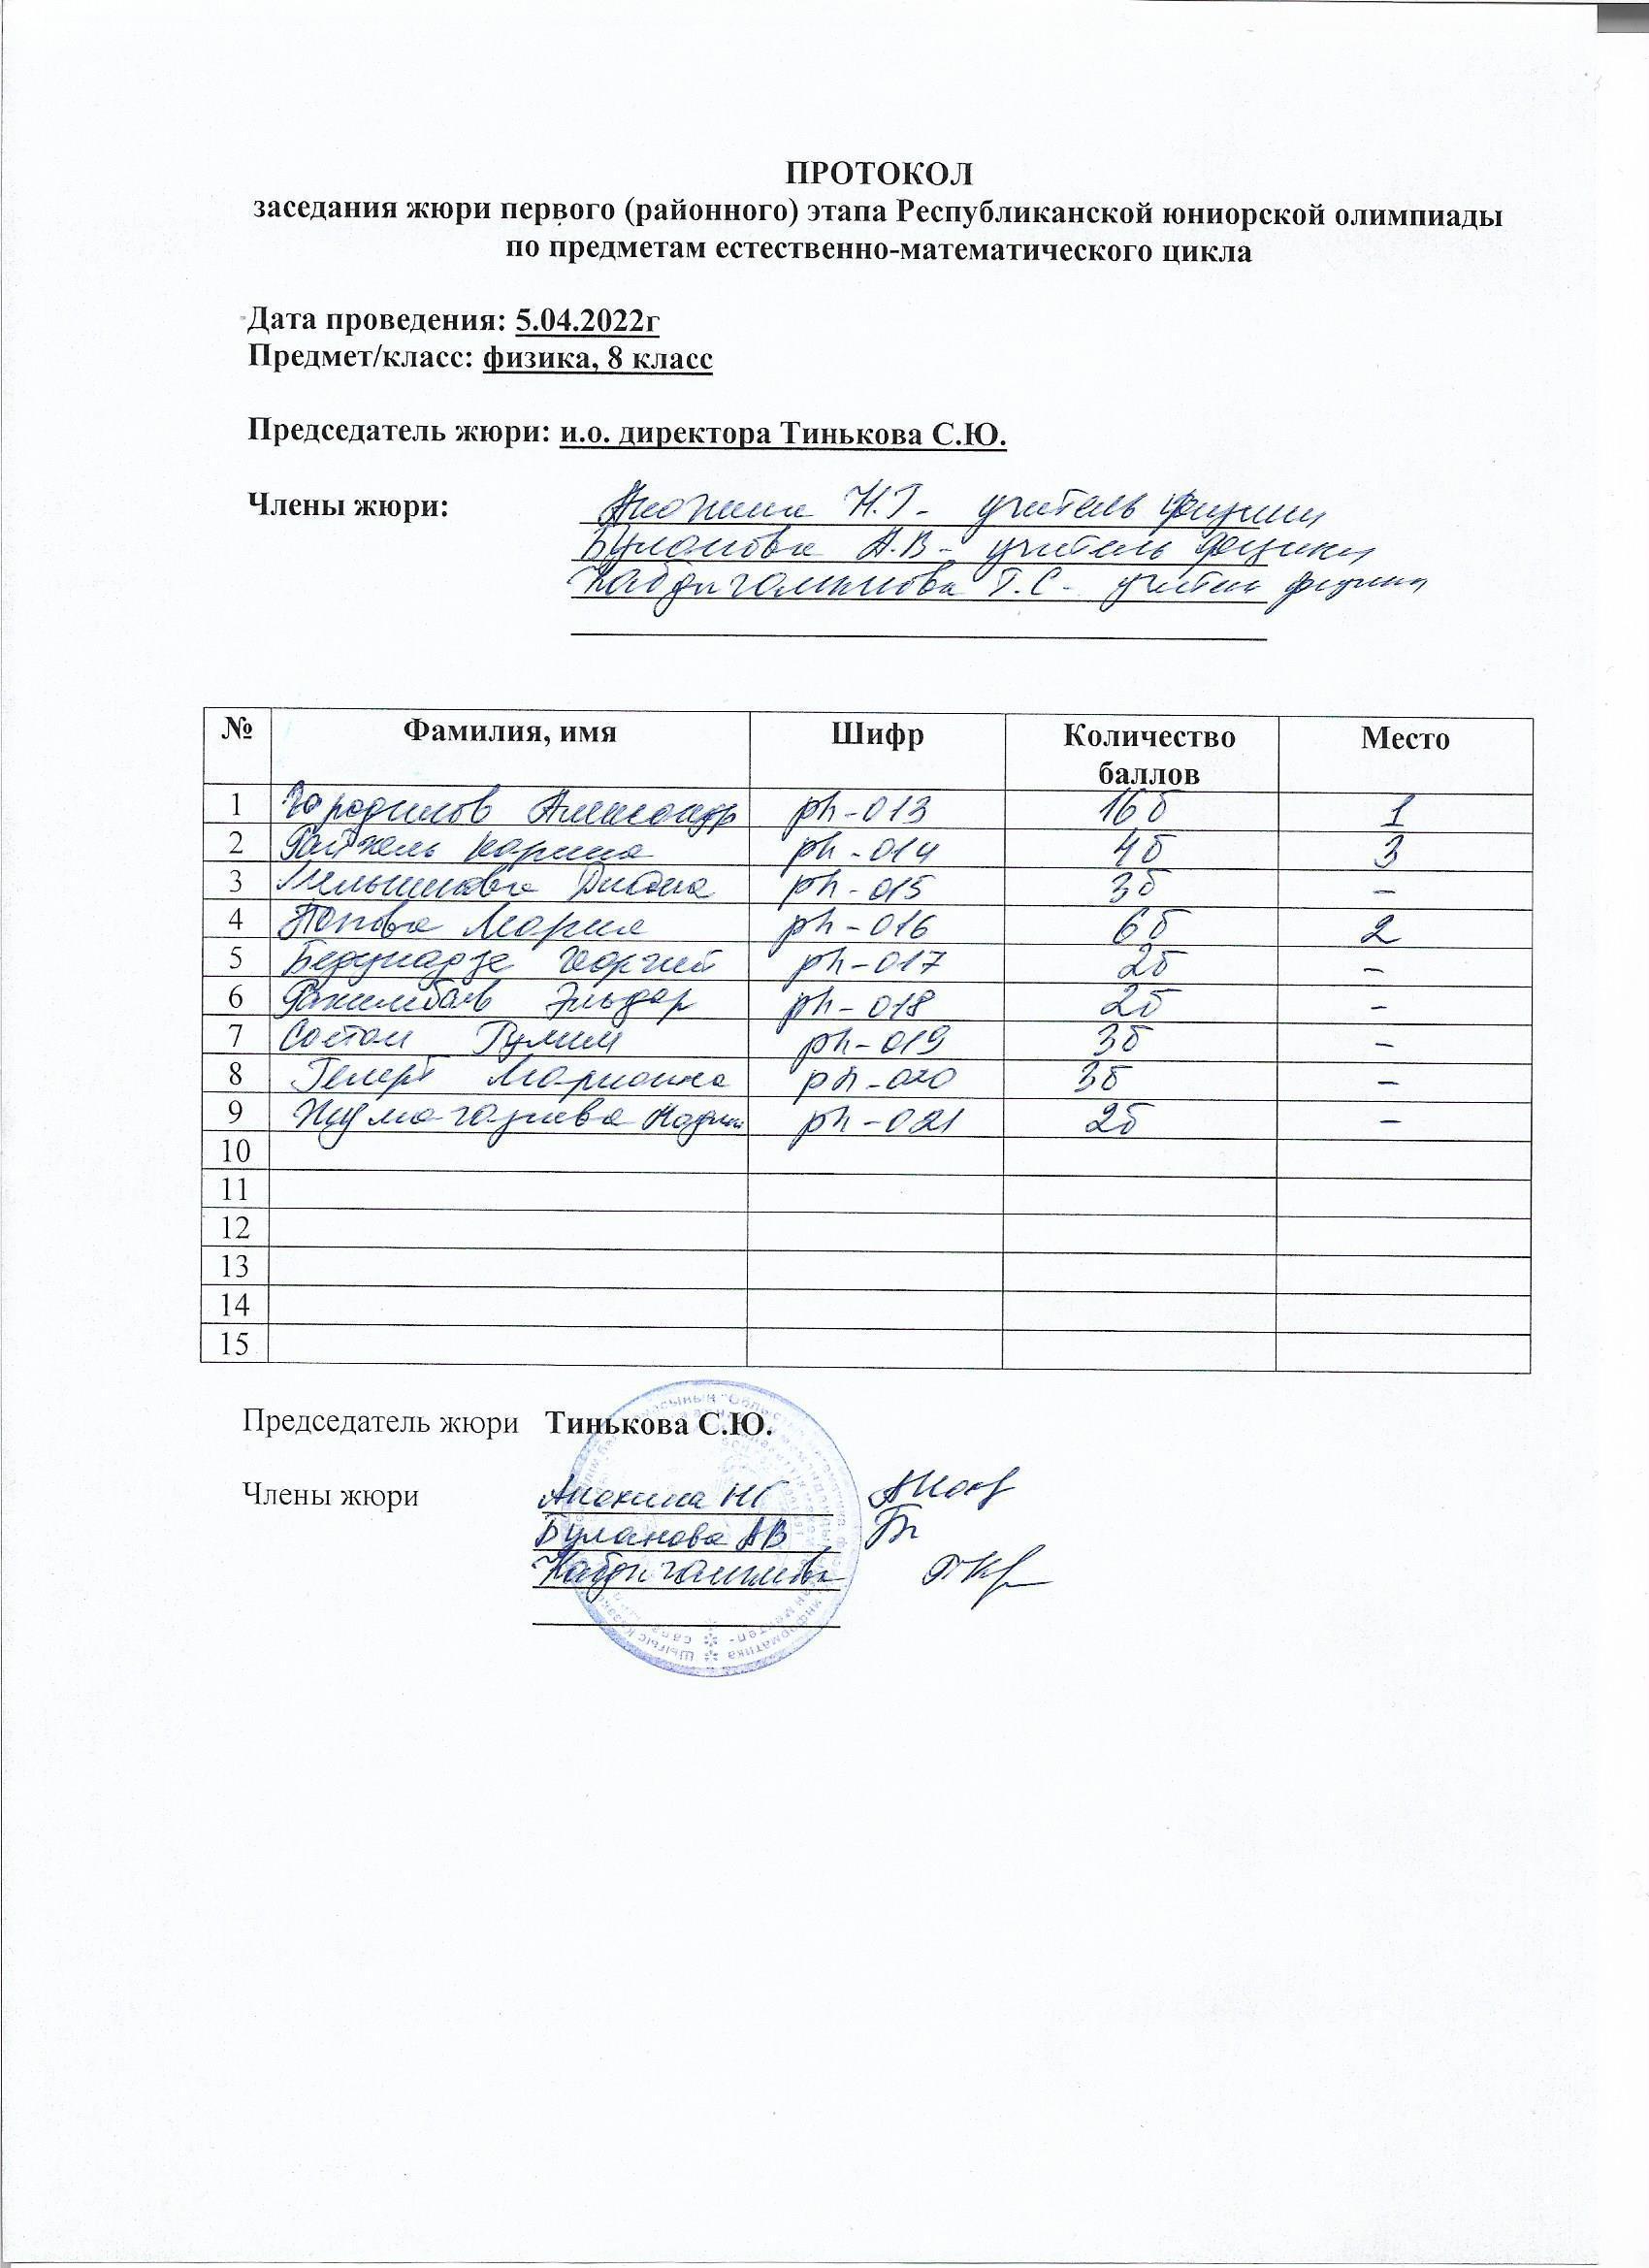 ПРОТОКОЛ
заседания жюри первого (районного) этапа Республиканской юниорской олимпиады
по предметам естественно-математического цикла
Дата проведения: 5.04.2022г
Предмет/класс: физика, 8 класс
Председатель жюри: и.о. директора Тинькова С.Ю.
Члены жюри: Анохина Н.Г - учитель физики
Буланова А.В - учитель физики
Т.С - учитель физики
№ Фамилия, имя Шифр Количество баллов Место
1 Александр ph-013 16б 1
2 Карина ph-014 4б 3
3 Диана ph-015 3б –
4 Попова Мария ph-016 6б 2
5 Георгий ph-017 2б –
6 Рахимбаев Эльдар ph-018 2б -
7 ph-019 3б –
8 Гелерт Марианна ph-020 3б –
9 ph-021 2б –
10
11
12
13
14
15
Председатель жюри Тинькова С.Ю.
Члены жюри Анохина НГ
Буланова АВ